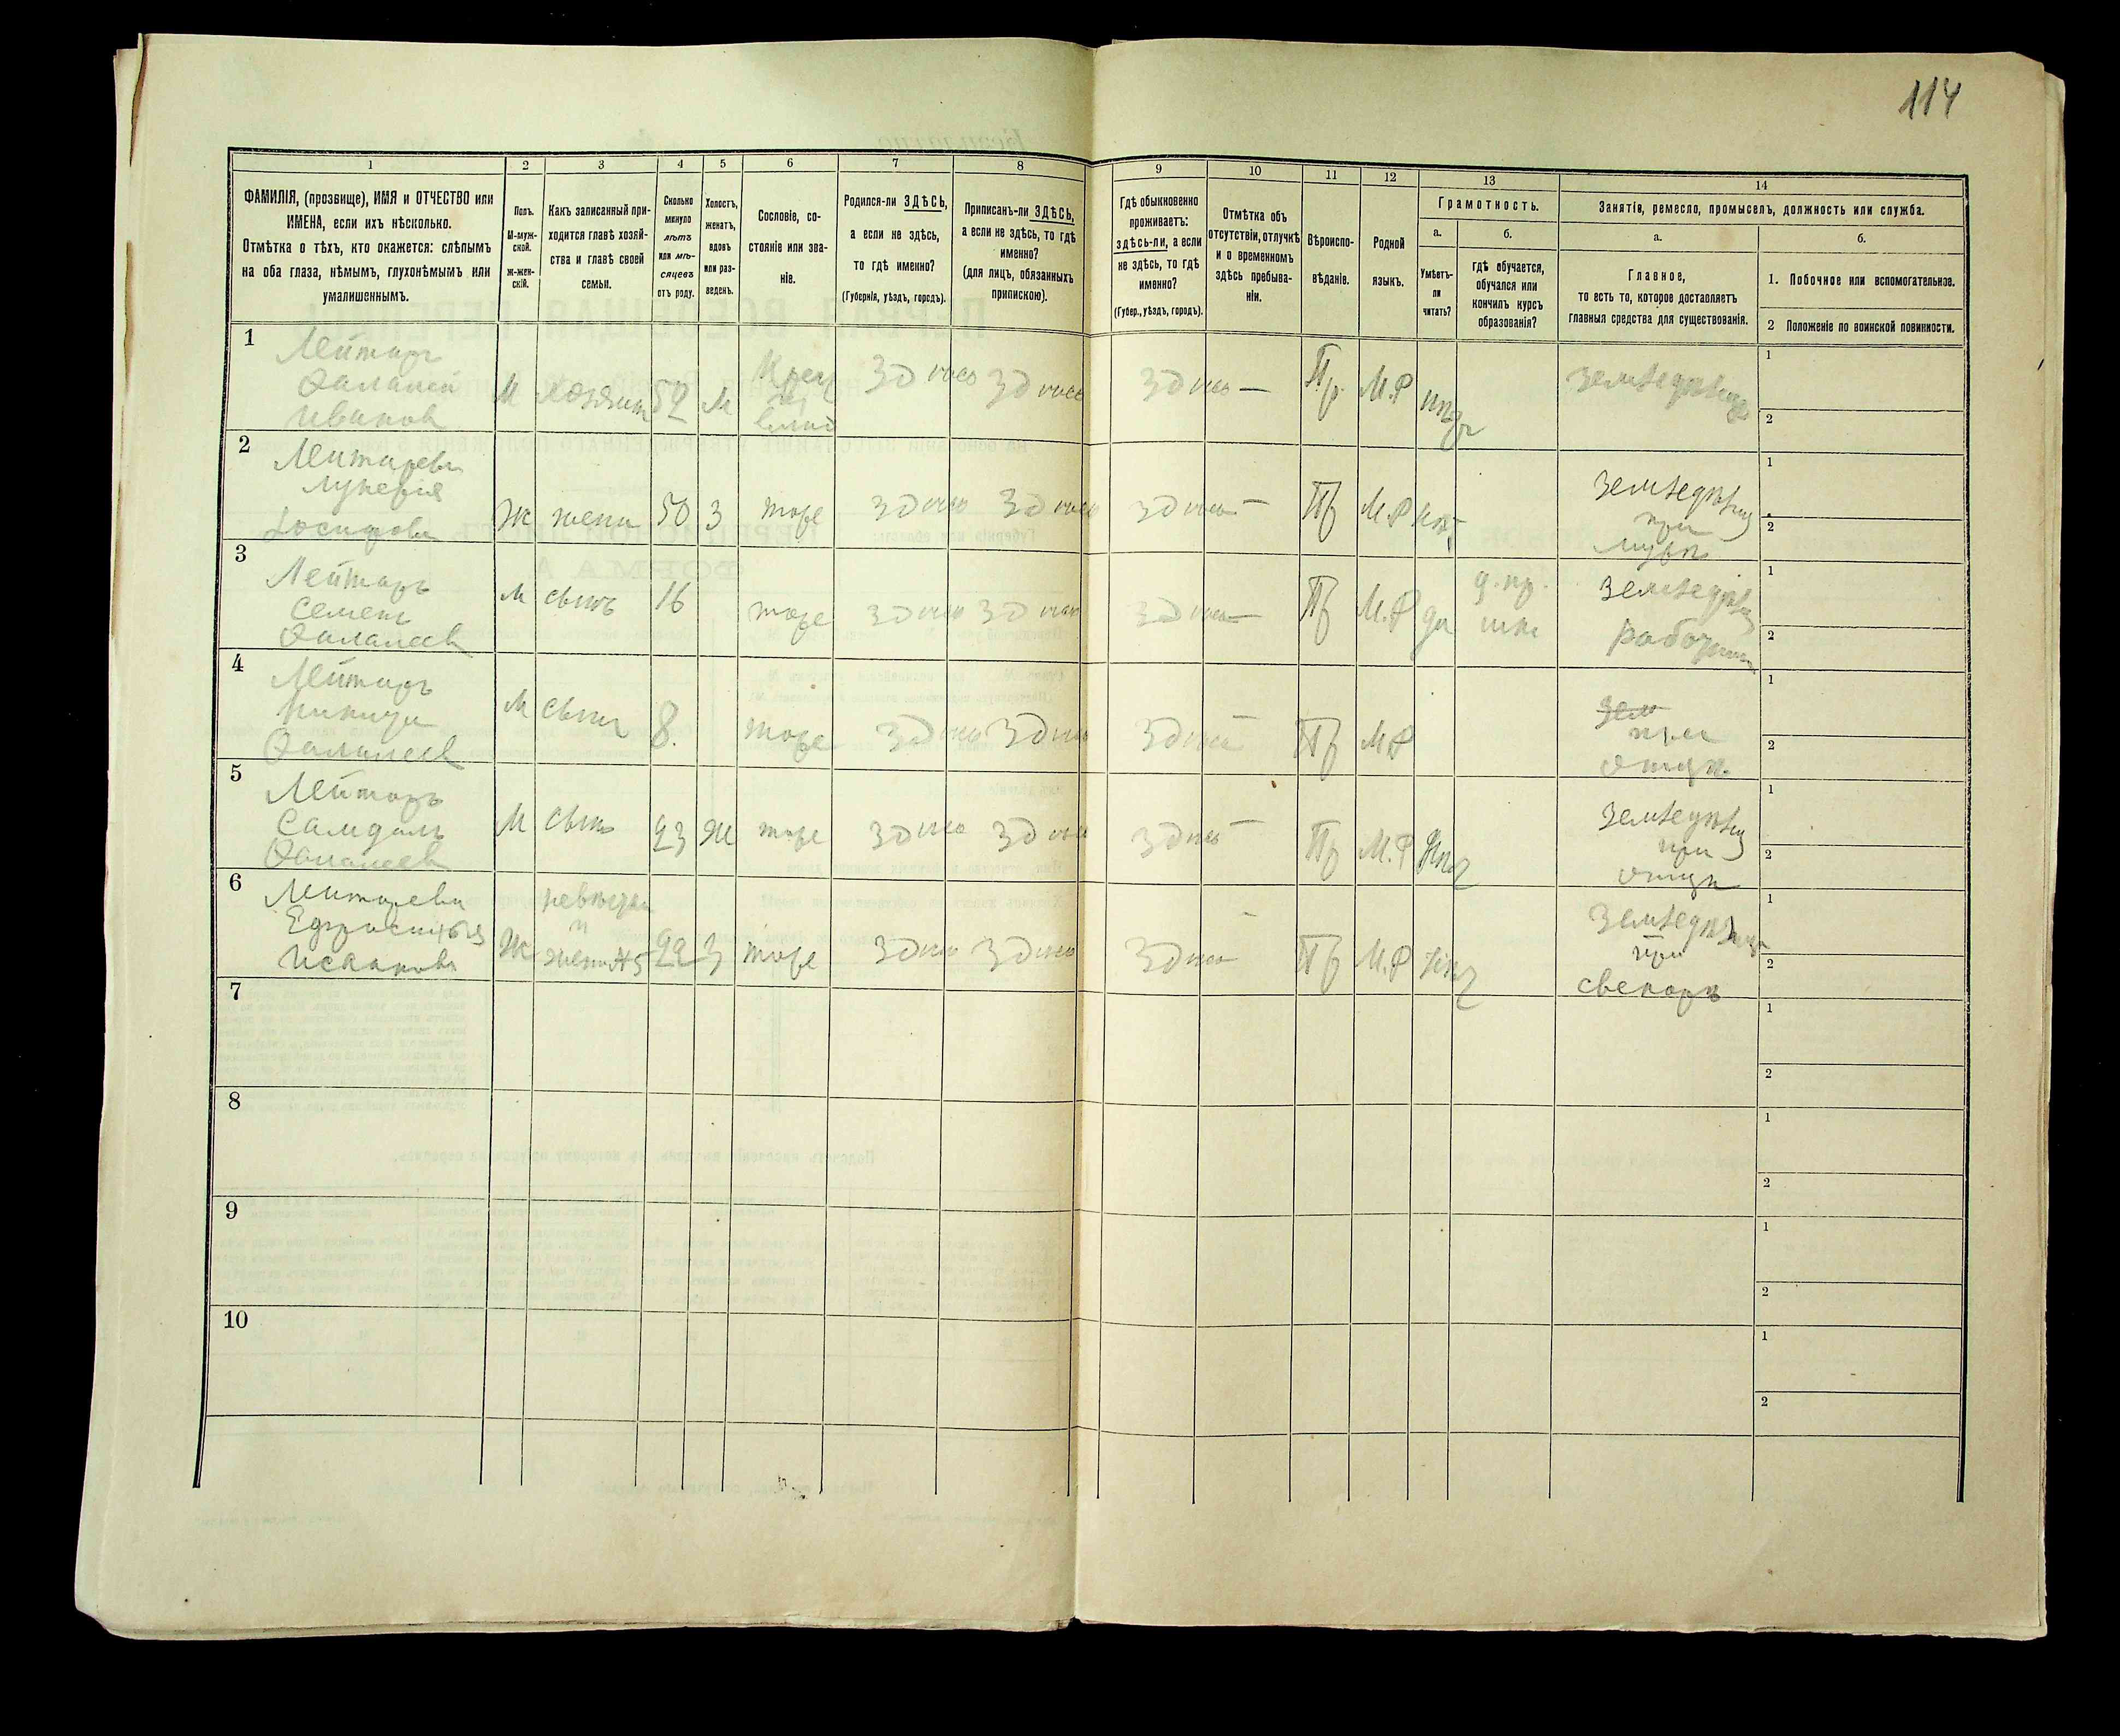 114
1
2
3
4
5
6
7
8
9
10
11
12
13
14
ФАМИЛІЯ, (прозвище), ИМЯ и ОТЧЕСТВО или
ИМЕНА, если ихъ нѣсколько.
Отмѣтка о тѣхъ, кто окажется: слѣпымъ
на оба глаза, нѣмымъ, глухонѣмымъ или
умалишеннымъ.
Полъ.
М-муж-
ской.
Ж-жен-
скій.
Какъ записанный при-
ходится главѣ хозяй-
ства и главѣ своей
семьи.
Сколько
минуло
лѣтъ
или мѣ-
сяцевъ
отъ роду.
Холостъ,
женатъ,
вдовъ
или раз-
веденъ.
Сословіе, со-
стояніе или зва-
ніе.
Родился-ли ЗДѢСЬ,
а если не здѣсь,
то гдѣ именно?
(Губернія, уѣздъ, городъ).
Приписанъ-ли ЗДѢСЬ,
а если не здѣсь, то гдѣ
именно?
(для лицъ, обязанныхъ
припискою).
Гдѣ обыкновенно
проживаетъ:
здѣсь-ли, а если
не здѣсь, то гдѣ
именно?
(Губер., уѣздъ, городъ).
Отмѣтка объ
отсутствіи, отлучкѣ
и о временномъ
здѣсь пребыва-
ніи.
Вѣроиспо-
вѣданіе.
Родной
языкъ.
Грамотность.
а.
Умѣетъ-
ли
читать?
б.
гдѣ обучается,
обучался или
кончилъ курсъ
образованія?
Занятія, ремесло, промыселъ, должность или служба.
а.
Главное,
то есть то, которое доставляетъ
главныя средства для существованія.
б.
1. Побочное или вспомогательное.
2 Положеніе по воинской повинности.
1
Лейтарь
Фалалей
Иванов
М
хозяинъ
52
Крест
здись
здись
здись —
Пр.
М.Р
земледѣлецъ
1
2
2
Лейтарева
Лукерія
Іосифова
Ж
жена
50
З
тоже
здись
здись
здись —
Пр
М.Р
земледѣлец
при
мужѣ
1
2
3
Лейтарь
Семенъ
Фалалеев
М
сынъ
16
тоже
здись
здись
здись —
Пр
М.Р
да
земледѣлец
работник
1
2
4
Лейтарь
Никита
Фалалеев
М
сынъ
8.
тоже
здись
здись
здись —
Пр
М.Р
зем
при
отцѣ
1
2
5
Лейтарь
Фалалеев
М
сынъ
23
Ж
тоже
здись
здись
здись —
Пр
М.Р
земледѣлец
при
отцѣ
1
2
6
Лейтарева
Исаакова
Ж
невѣстка
и
жена №5
22
З
тоже
здись
здись
здись
—
Пр
М.Р
земледѣлец
при
свекорѣ
1
2
7
1
2
8
1
2
9
1
2
10
1
2